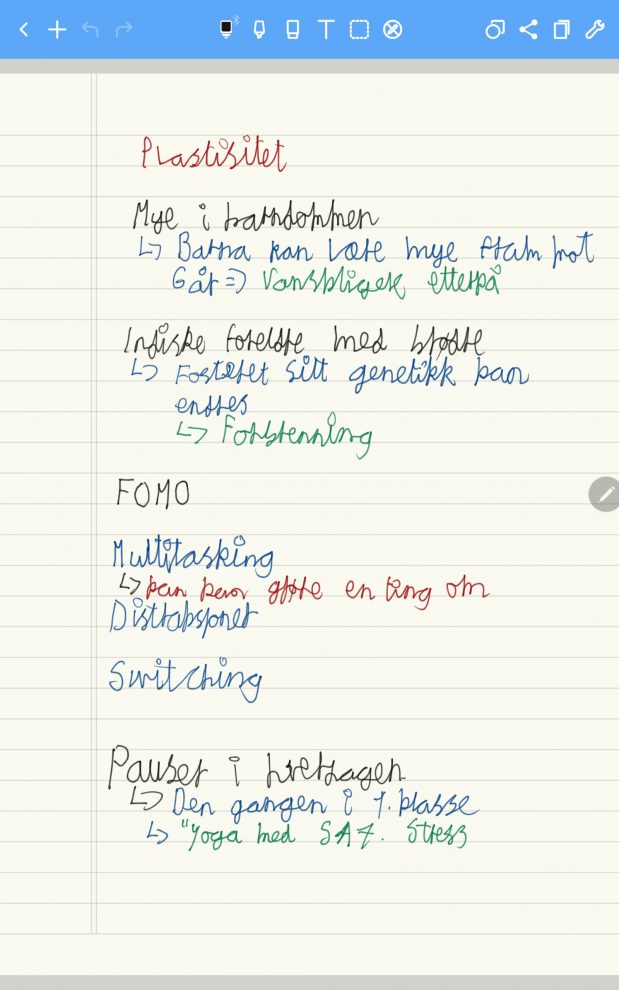 Plastisitet
Mye i barndommen
↳ Barna kan være mye fram mot
Går => Vanskligere etterpå
Indiske foreldre med brødre
↳ Fosteret sitt genetikk kan
endres
↳ Forskrenning
FOMO
Multitasking
↳ kan bare gjøre en ting om
Distraksjoner
Switching
Pauser i hverdagen
↳ Den gangen i 7. klasse
↳ "Yoga med SAZ. Stress